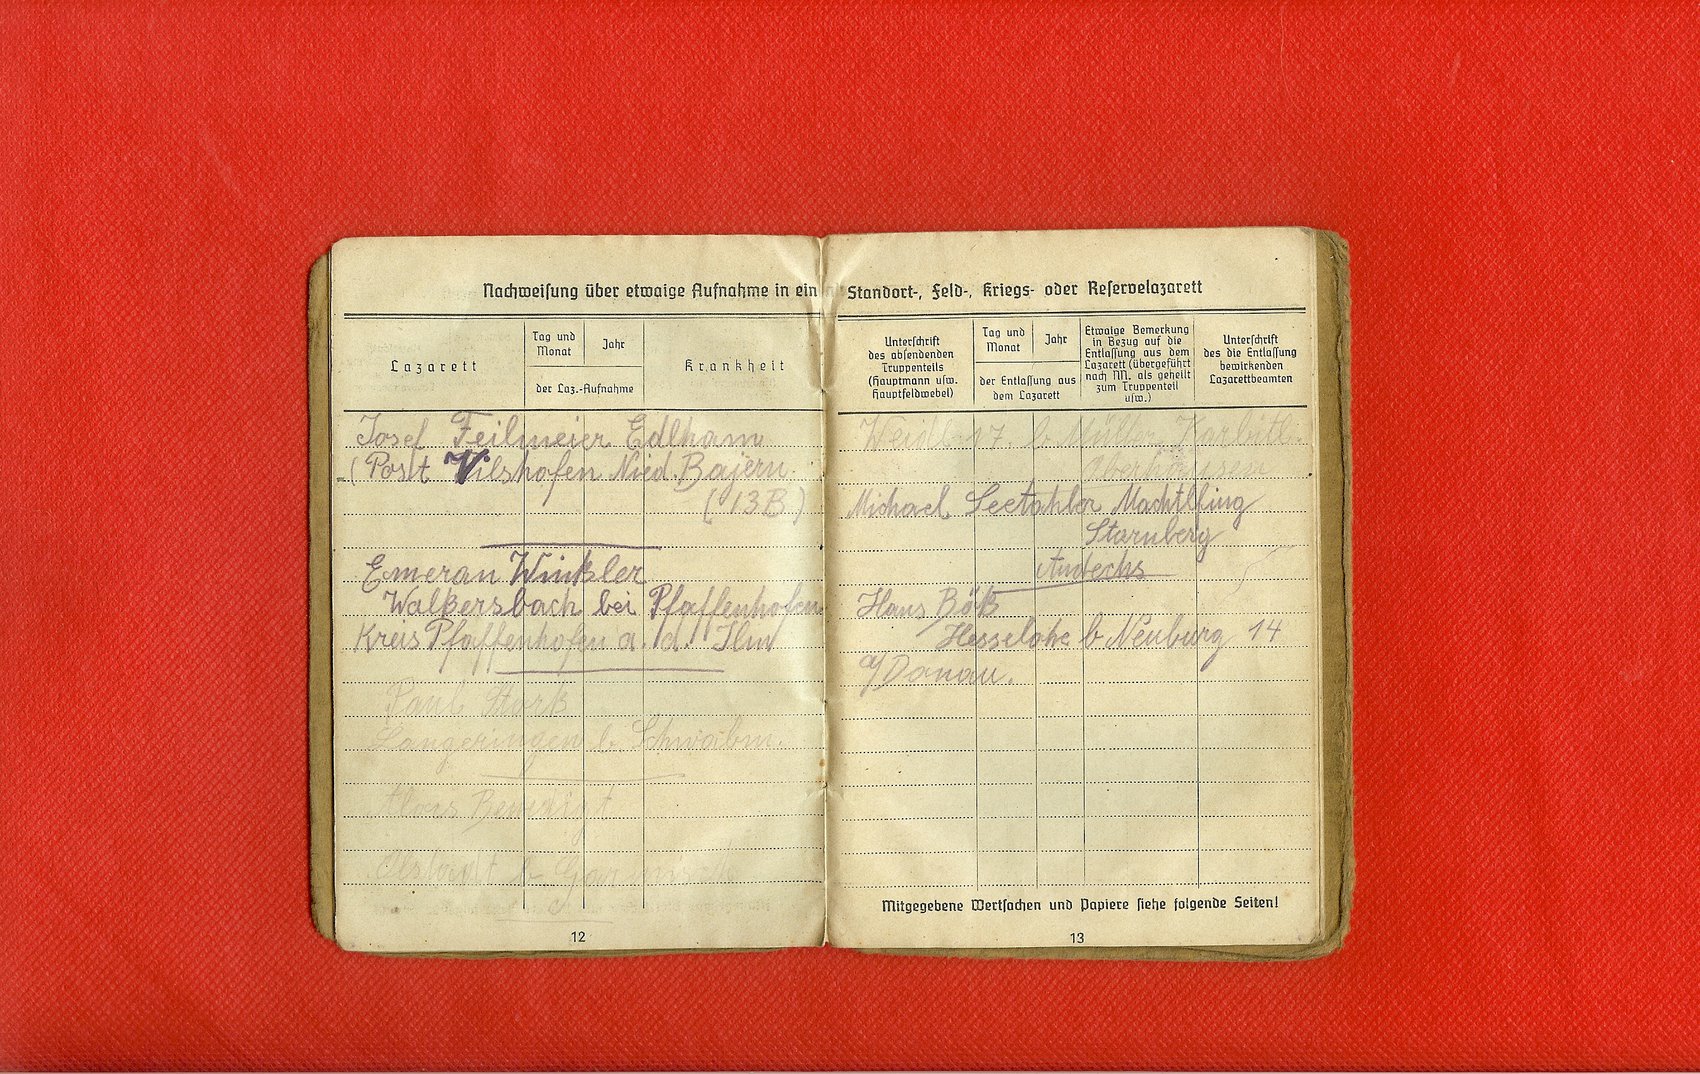 Nachweisung über etwaige Aufnahme in ein
Lazarett
Tag und Monat
Jahr
der Laz.-Aufnahme
Krankheit
Josef Feilmeier Edlham
(Post Vilshofen Nied. Bajern
(13B)
Emeran Winkler
Walkersbach bei Pfaffenhofen
Kreis Pfaffenhofen a. d. Ilm
Paul Stork
Langeringen b. Schwabm.
Alois
b Garmisch
12
Standort-, Feld-, Kriegs- oder Reservelazarett
Unterschrift
des absendenden
Truppenteils
(Hauptmann usw.
Hauptfeldwebel)
Tag und Monat
Jahr
der Entlassung aus
dem Lazarett
Etwaige Bemerkung
in Bezug auf die
Entlassung aus dem
Lazarett (übergeführt
nach NN. als geheilt
zum Truppenteil
usw.)
Unterschrift
des die Entlassung
bewirkenden
Lazarettbeamten
17. b Müller
Oberhausen
Michael Seetahler Machtlfing
Starnberg
Andechs
Hans Böß
Hesselohe b Neuburg 14
a/Donau.
Mitgegebene Wertsachen und Papiere siehe folgende Seiten!
13